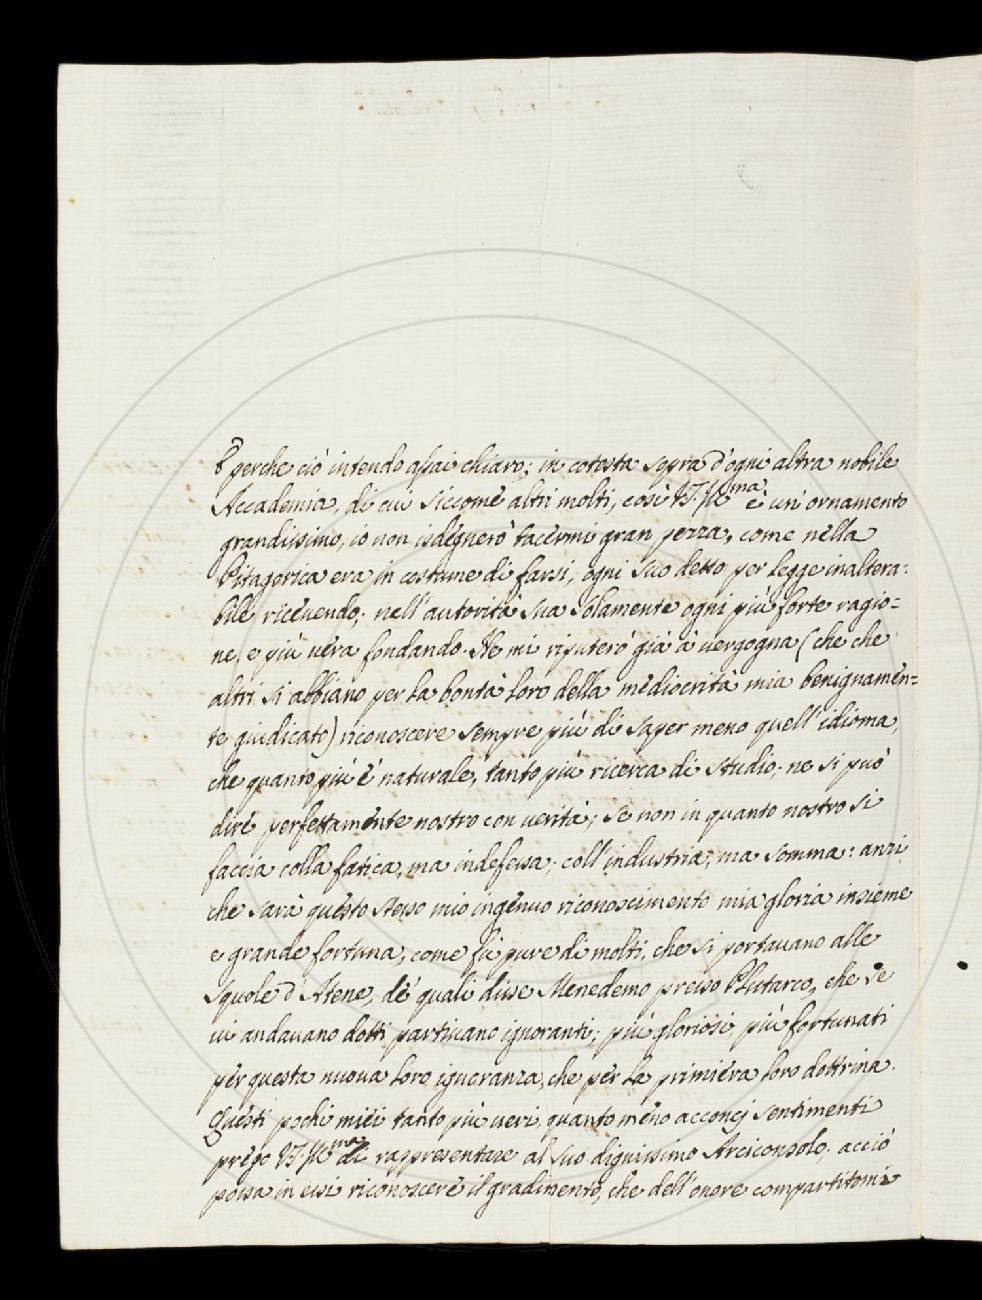 E perche ciò intendo assai chiaro; in cotesta sopra d'ogni altra nobile
Accademia, di cui siccome altri molti, così V.S. Ill.ma è un'ornamento
grandissimo, io non isdegnerò tacermi gran pezza, come nella
Pitagorica era in costume di farsi, ogni suo detto per legge inaltera=
bile ricevendo; nell'autorità sua solamente ogni più forte ragio=
ne, e più vera fondando. Ne mi riputerò già à vergogna (che che
altri si abbiano per la bontà loro della mediocrità mia benignamen=
te giudicato) riconoscere sempre più di saper meno quell'idioma,
che quanto più è naturale, tanto più ricerca di studio; ne si può
dire perfettamente nostro con verità; se non in quanto nostro si
faccia colla fatica, ma indefessa; coll'industria, ma somma: anzi
che sarà questo stesso mio ingenuo riconoscimento mia gloria insieme
e grande fortuna; come fù pure di molti, che si portavano alle
squole d'Atene, de' quali disse Menedemo presso Plutarco, che se
ivi andavano dotti partivano ignoranti; più gloriosi, più fortunati
per questa nuova loro ignoranza, che per la primiera loro dottrina.
Questi pochi miei tanto più veri, quanto meno acconcj sentimenti
prego V.S. Ill.ma di rappresentare al suo dignissimo Arciconsolo; acciò
possa in essi riconoscere il gradimento, che dell'onore compartitomi